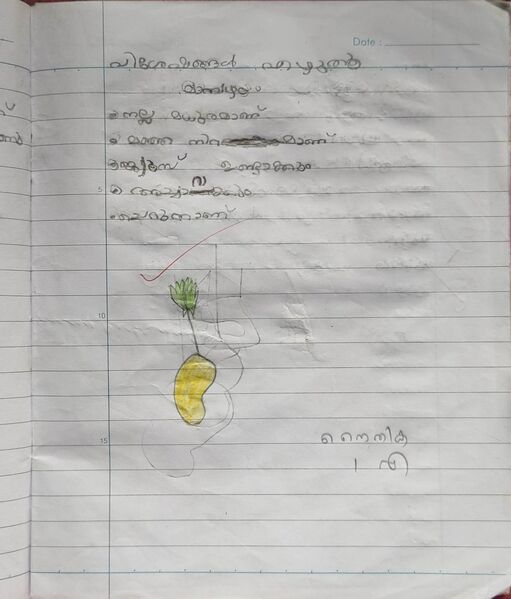 Date :
വിശേഷങ്ങൾ എഴുതൽ
മാമ്പഴം
• നല്ല മധുരമാണ്
• മഞ്ഞ നിറമാണ്
• ജ്യൂസ് ഉണ്ടാക്കും
5
• അച്ചാറാക്കും
• ചെറുതാണ്
10
15
നൈതിക
1 എ